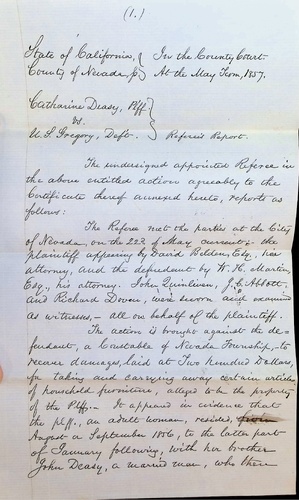 (1.)
State of California, } In the County Court
County of Nevada, } At the May Term, 1857.
Catharine Deasy, Plff.
vs.
U. S. Gregory, Deft. Referee's Report.
The undersigned appointed Referee in
the above entitled action agreeably to the
Certificate thereof annexed hereto, reports as
follows:
The Referee met the parties at the City
of Nevada, on the 22d of May current;- the
plaintiff appearing by David Belden, Esq., her
attorney, and the defendant by W. H. Martin,
Esq., his attorney. John Quinlivan, J. C. Abbott
and Richard Doven, were sworn and examined
as witnesses, - all on behalf of the plaintiff.
The action is brought against the de-
fendant, a Constable of Nevada Township,- to
recover damages, laid at Two Hundred Dollars,
for taking and carrying away certain articles
of household furniture, alleged to be the property
of the Plff.- It appeared in evidence that
the plff., an adult woman, resided,
August or September 1856, to the latter part
of January following, with her brother
John Deasy, a married man, who there